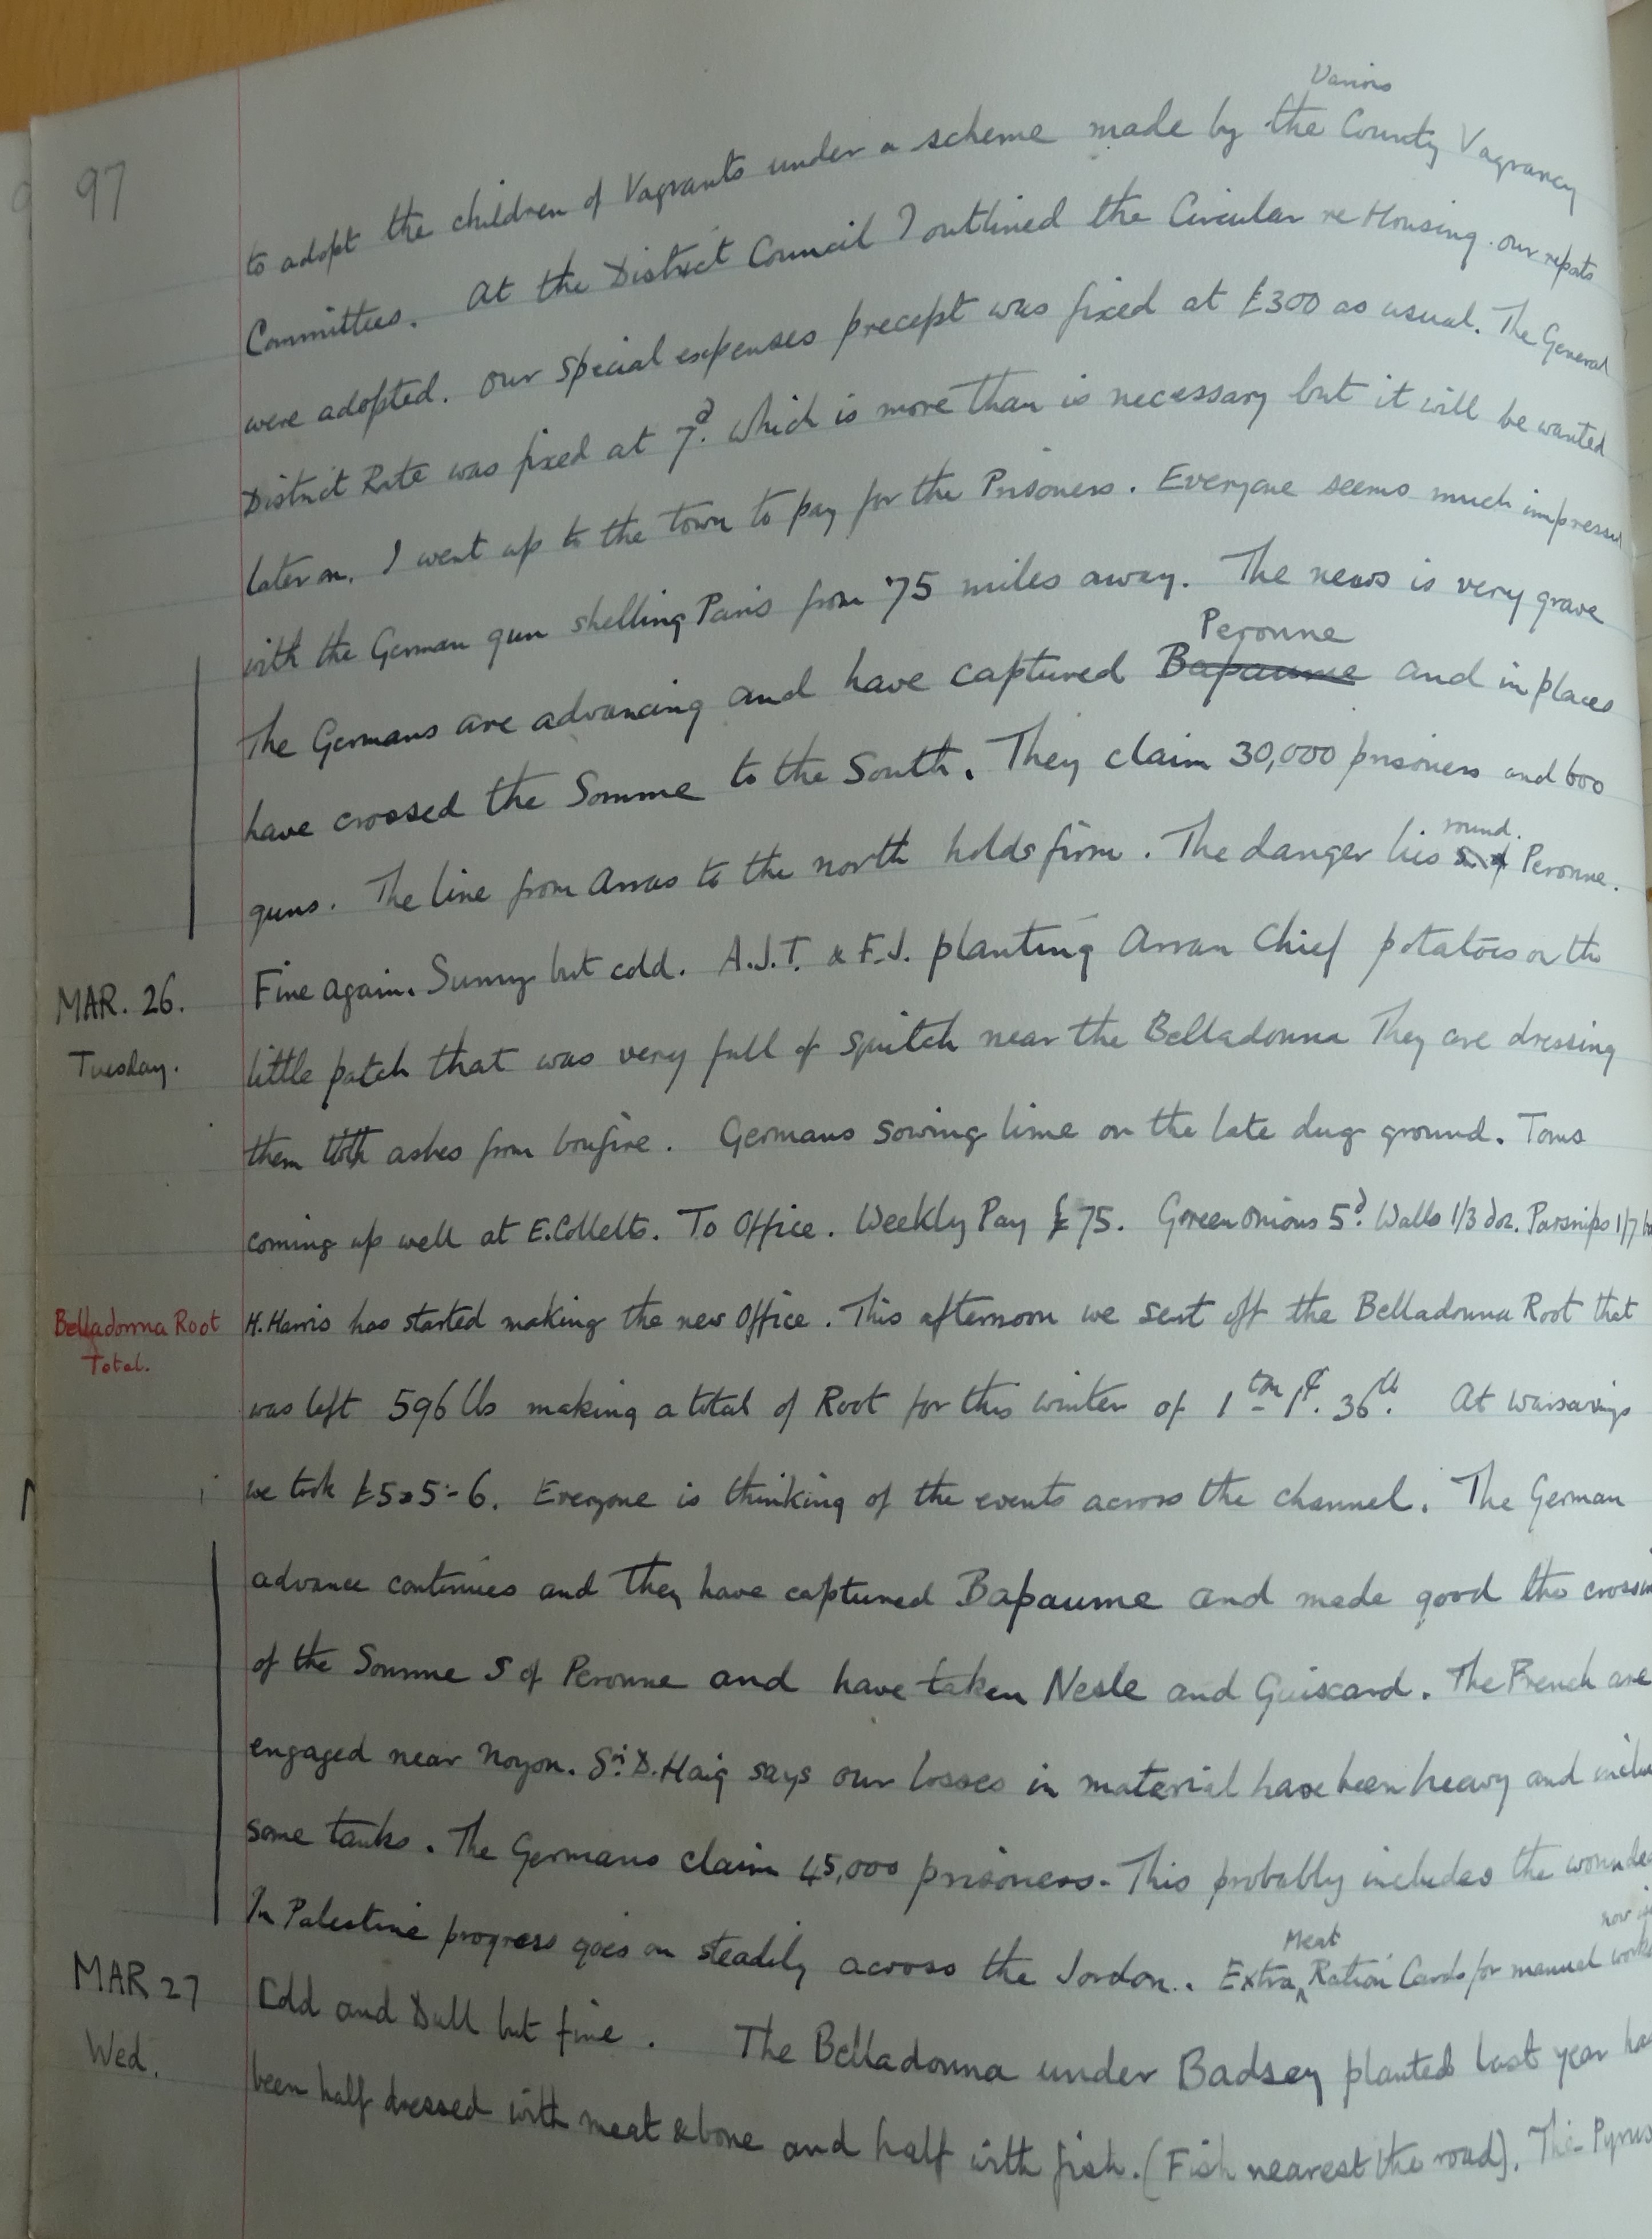 97
Various
to adopt the children of Vagrants under a scheme made by the County Vagrancy
Committees. At the District Council I outlined the Circular re Housing. our repats
were adopted. our special expenses precept was fixed at £300 as usual. The General
District Rate was fixed at 7d. which is more than is necessary but it will be wanted
later on. I went up to the town to pay for the Prisoners. Everyone seems much impressed
with the German gun shelling Paris from 75 miles away. The news is very grave
Peronne
The Germans are advancing and have captured Bapaume and in places
have crossed the Somme to the South. They claim 30,000 prisoners and 600
round.
guns. The line from Arras to the north holds firm. The danger lies Peronne.
MAR. 26. Fine again. Sunny but cold. A.J.T. & F.J. planting Arran Chief potatoes on the
Tuesday. little patch that was very full of squitch near the Belladonna They are dressing
them with ashes from bonfire. Germans sowing lime on the late dug ground. Toms
coming up well at E.Colletts. To Office. Weekly Pay £75. Green onions 5d. Walls 1/3 doz. Parsnips 1/7
Belladonna Root H. Harris has started making the new Office. This afternoon we sent off the Belladonna Root that
Total. was left 596 lbs making a total of Root for this winter of 1 ton 1 c. 36 lb. At warsavings
we took £5-5-6. Everyone is thinking of the events across the channel. The German
advance continues and they have captured Bapaume and made good the crossin
of the Somme S of Peronne and have taken Nesle and Guiscard. The French are
engaged near Noyon. Sir D. Haig says our losses in material have been heavy and inclu
some tanks. The Germans claim 45,000 prisoners. This probably includes the wounded
Meat now
In Palestine progress goes on steadily across the Jordon. Extra Ration Cards for manual work
MAR 27 Cold and Dull but fine. The Belladonna under Badsey planted last year has
Wed. been half dressed with meat & bone and half with fish. (Fish nearest the road). The Pyrus